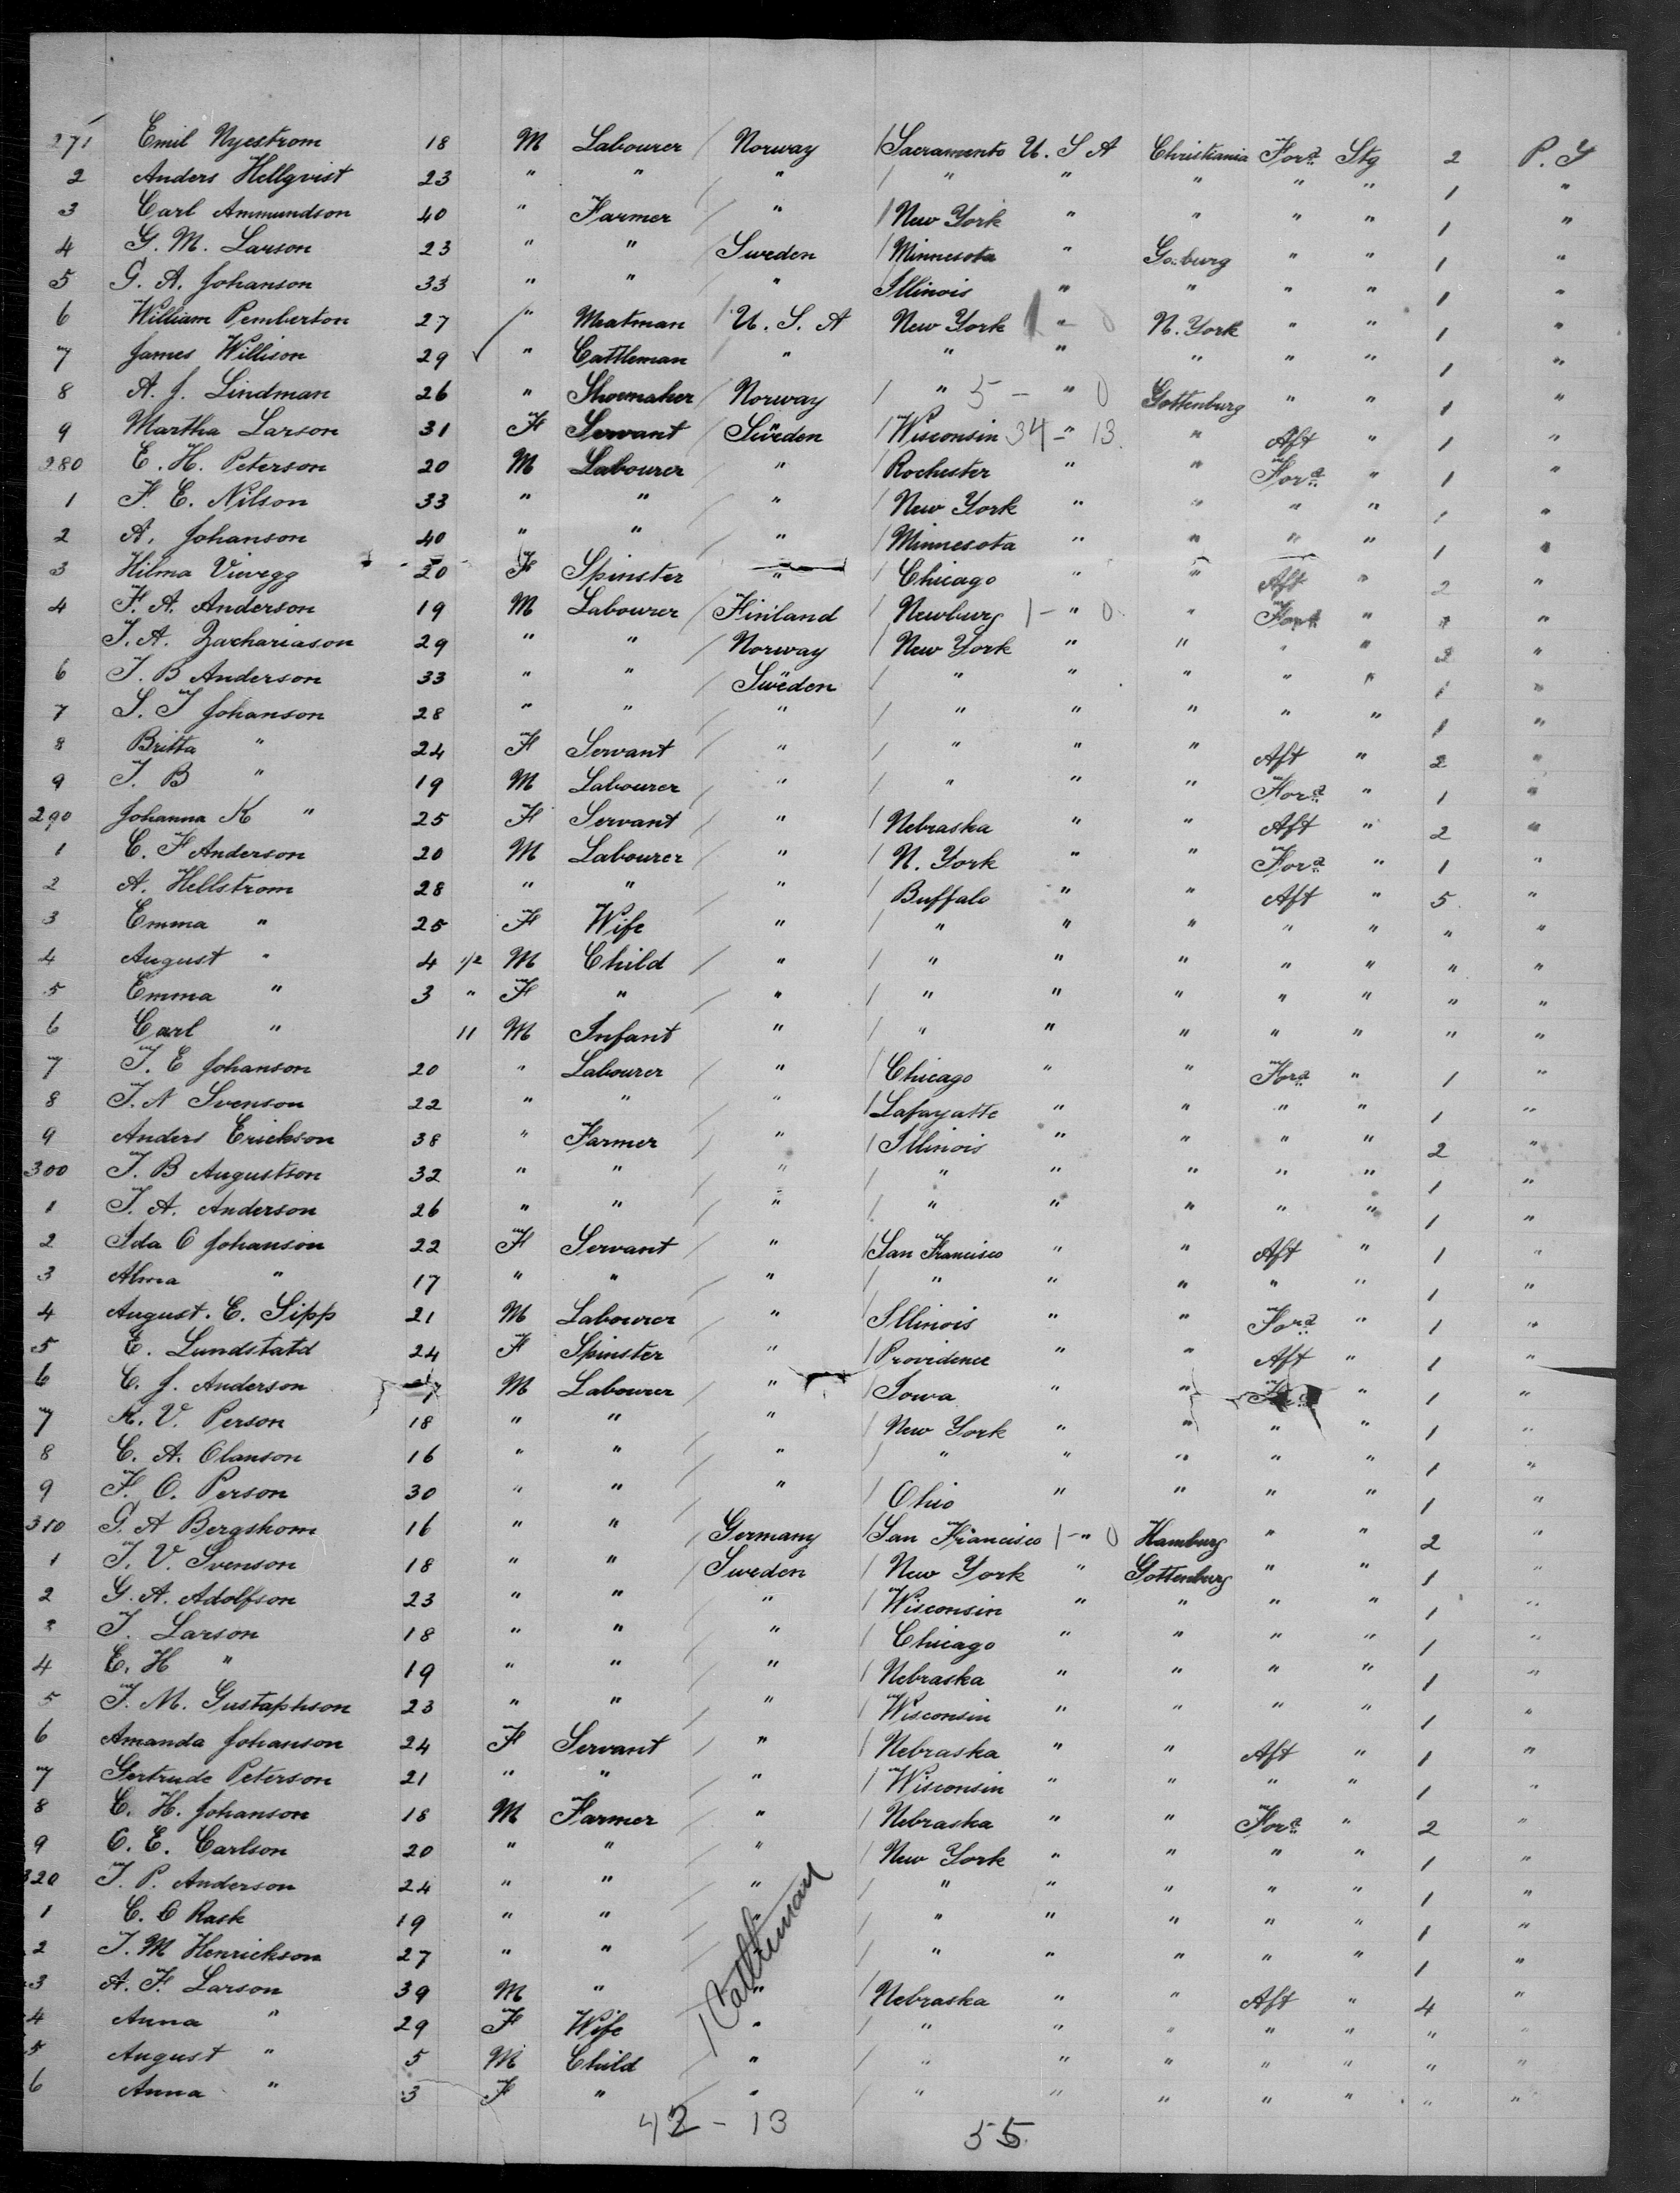 271 Emil Nyestrom 18 M Labourer Norway Sacramento U.S A Christiania For:d Stg 2 P. S
2 Anders Hellgvist 23 " " " " " " " " 1 "
3 Carl Ammundson 40 " Farmer " New York " " " " 1 "
4 G. M. Larson 23 " " Sweden Minnesota " Go:burg " " 1 "
5 G. A. Johanson 33 " " " Illinois " " " " 1 "
6 William Pemberton 27 " Meatman U. S. A New York 1 - 0 N. York " " 1 "
7 James Willison 29 " Cattleman " " " " " " 1 "
8 A. J. Lindman 26 " Shoemaker Norway " 5 - " 0 Gottenburg " " 1 "
9 Martha Larson 31 F Servant Sweden Wisconsin 34 - " 13 " Aft " 1 "
280 E. H. Peterson 20 M Labourer " Rochester " " For:d " 1 "
1 F. E. Nilson 33 " " " New York " " " " 1 "
2 A. Johanson 40 " " " Minnesota " " " " 1 "
3 Hilma Vivegg 20 F Spinster " Chicago " " Aft " 2 "
4 F. A. Anderson 19 M Labourer Finland Newburg 1 - " 0 " For:d " 1 "
J. A. Zachariason 29 " " Norway New York " " " " 2 "
6 J. B Anderson 33 " " Sweden " " " " " 1 "
7 S. J Johanson 28 " " " " " " " " 1 "
8 Britta " 24 F Servant " " " " Aft " 2 "
9 J. B " 19 M Labourer " " " " For:d " 1 "
290 Johanna K " 25 F Servant " Nebraska " " Aft " 2 "
1 C. F Anderson 20 M Labourer " N. York " " For:d " 1 "
2 A. Hellstrom 28 " " " Buffalo " " Aft " 5 "
3 Emma " 25 F Wife " " " " " " " "
4 August " 4 1/2 M Child " " " " " " " "
5 Emma " 3 " F " " " " " " " " "
6 Carl " 11 M Infant " " " " " " " "
7 J. E Johanson 20 " Labourer " Chicago " " For:d " 1 "
8 J. N Svenson 22 " " " Lafayatte " " " " 1 "
9 Anders Erickson 38 " Farmer " Illinois " " " " 2 "
300 J. B Augustson 32 " " " " " " " " 1 "
1 J. A. Anderson 26 " " " " " " " " 1 "
2 Ida O Johanson 22 F Servant " San Francisco " " Aft " 1 "
3 Alma " 17 " " " " " " " " 1 "
4 August. E. Sipp 21 M Labourer " Illinois " " For:d " 1 "
5 E. Lundstatd 24 F Spinster " Providence " " Aft " 1 "
6 C. J. Anderson M Labourer " Iowa " " " 1 "
7 K. V. Person 18 " " " New York " " " " 1 "
8 C. A. Olanson 16 " " " " " " " " 1 "
9 F. O. Person 30 " " " Ohio " " " " 1 "
310 G. A Bergshom 16 " " Germany San Francisco 1 - " 0 Hamburg " " 2 "
1 J. V. Svenson 18 " " Sweden New York " Gottenburg " " 1 "
2 G. A. Adolfson 23 " " " Wisconsin " " " " 1 "
3 J. Larson 18 " " " Chicago " " " " 1 "
4 E. H " 19 " " " Nebraska " " " " 1 "
5 J. M. Gustaphson 23 " " " Wisconsin " " " " 1 "
6 Amanda Johanson 24 F Servant " Nebraska " " Aft " 1 "
7 Gertrude Peterson 21 " " " Wisconsin " " " " 1 "
8 C. H. Johanson 18 M Farmer " Nebraska " " For:d " 2 "
9 O. E. Carlson 20 " " " New York " " " " 1 "
320 J. P. Anderson 24 " " " " " " " " 1 "
1 C. O Rask 19 " " " " " " " " 1 "
2 J. M Henrickson 27 " " " " " " " " 1 "
3 A. F. Larson 39 M " " Nebraska " " Aft " 4 "
4 Anna " 29 F Wife " " " " " " " "
5 August " 5 M Child " " " " " " " "
6 Anna " 3 F " " " " " " " " "
1 Cattleman
42 - 13 55